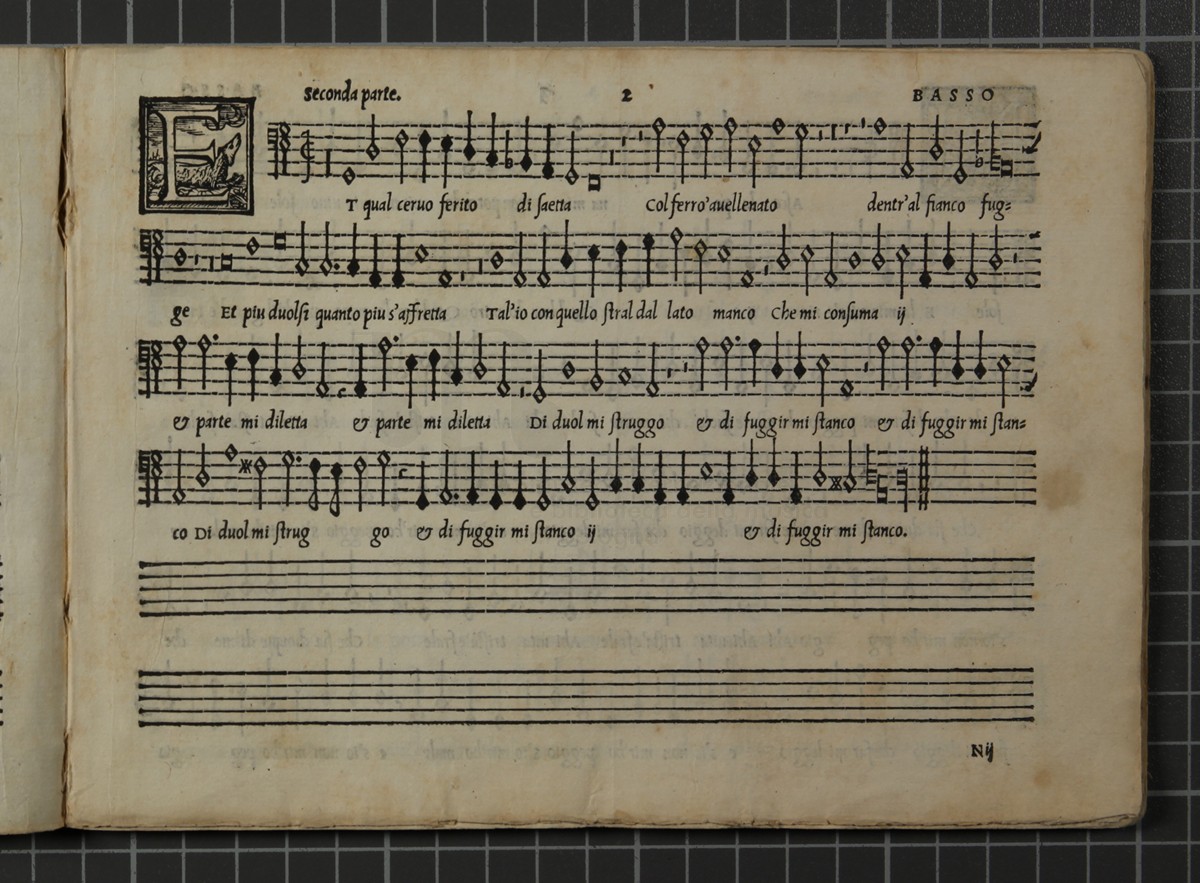 Seconda parte. 2 BASSO
ET qual ceruo ferito di saetta Col ferro'auellenato dentr'al fianco fug=
ge Et piu duolsi quanto piu s'affretta Tal'io con quello stral dal lato manco Che mi consuma ij
& parte mi diletta & parte mi diletta Di duol mi struggo & di fuggir mi stanco & di fuggir mi stan=
co Di duol mi strug go & di fuggir mi stanco ij & di fuggir mi stanco.
Nij